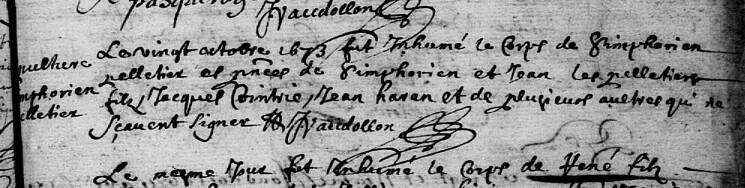 Vaudollon
pulture
mphorien
elletier
Le vingt octobre 1673 fut Inhumé le Corps de Simphorien
pelletier es pnces de Simphorien et Jean les pelletiers
filz, Jacques Cointrie, Jean haran et de plusieurs aultres qui ne
sçavent signer Vaudollon
Le mesme Jour fut Inhumé le Corps de René filz